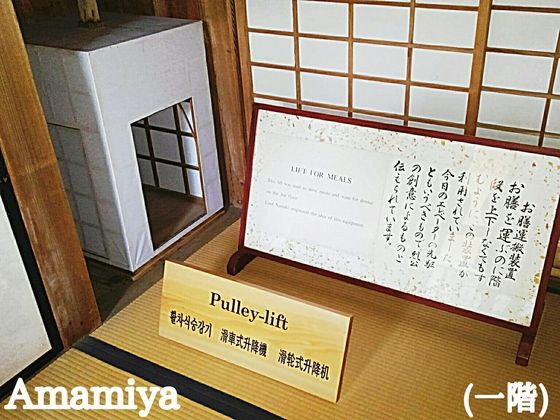 LIFT FOR MEALS
this lift was used to serve meals and wine for dinner
on the 3rd floor.
Lord Nariaki originated the idea of this equipment.
お膳運搬装置
お膳を運ぶのに階
段を上下しなくてもす
むように、この装置が
利用されていました。
今日のエレベーターの先駆
ともいうべきもので、烈公
の創意によるものと
伝えられています。
Pulley-lift
활차식승강기 滑車式升降機 滑轮式升降机
Amamiya
(一階)